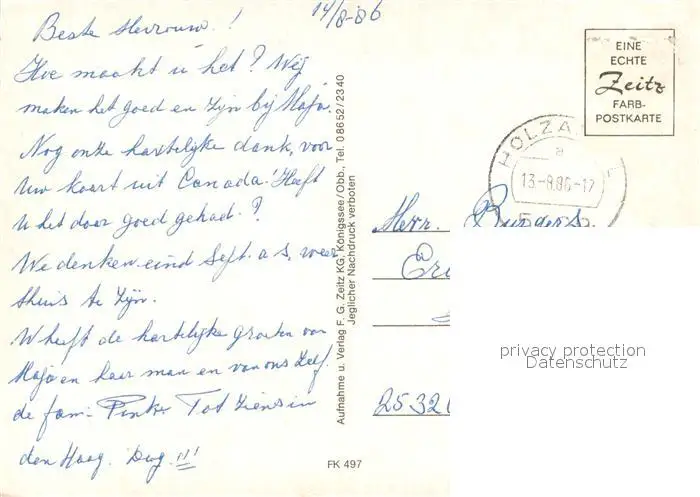 14/8-86
Beste Mevrouw.!
Hoe maakt u het? Wij
maken het goed en zijn bij Maja.
Nog onze hartelijke dank, voor
Uw kaart uit Canada! Heeft
U het daar goed gehad.?
We denken eind Sept. a s, weer
thuis te zijn.
U heeft de hartelijke groeten van
Maja en haar man en van ons Zelf.
de fam: Tot ziens in
den Haag. Dag!!!
EINE
ECHTE
Zeitz
FARB-
POSTKARTE
HOLZA
a
13-8.86-17
Herr.
2532
privacy protection
Datenschutz
Aufnahme u. Verlag F. G. Zeitz KG, Königssee/Obb., Tel. 08652/2340
Jeglicher Nachdruck verboten
FK 497